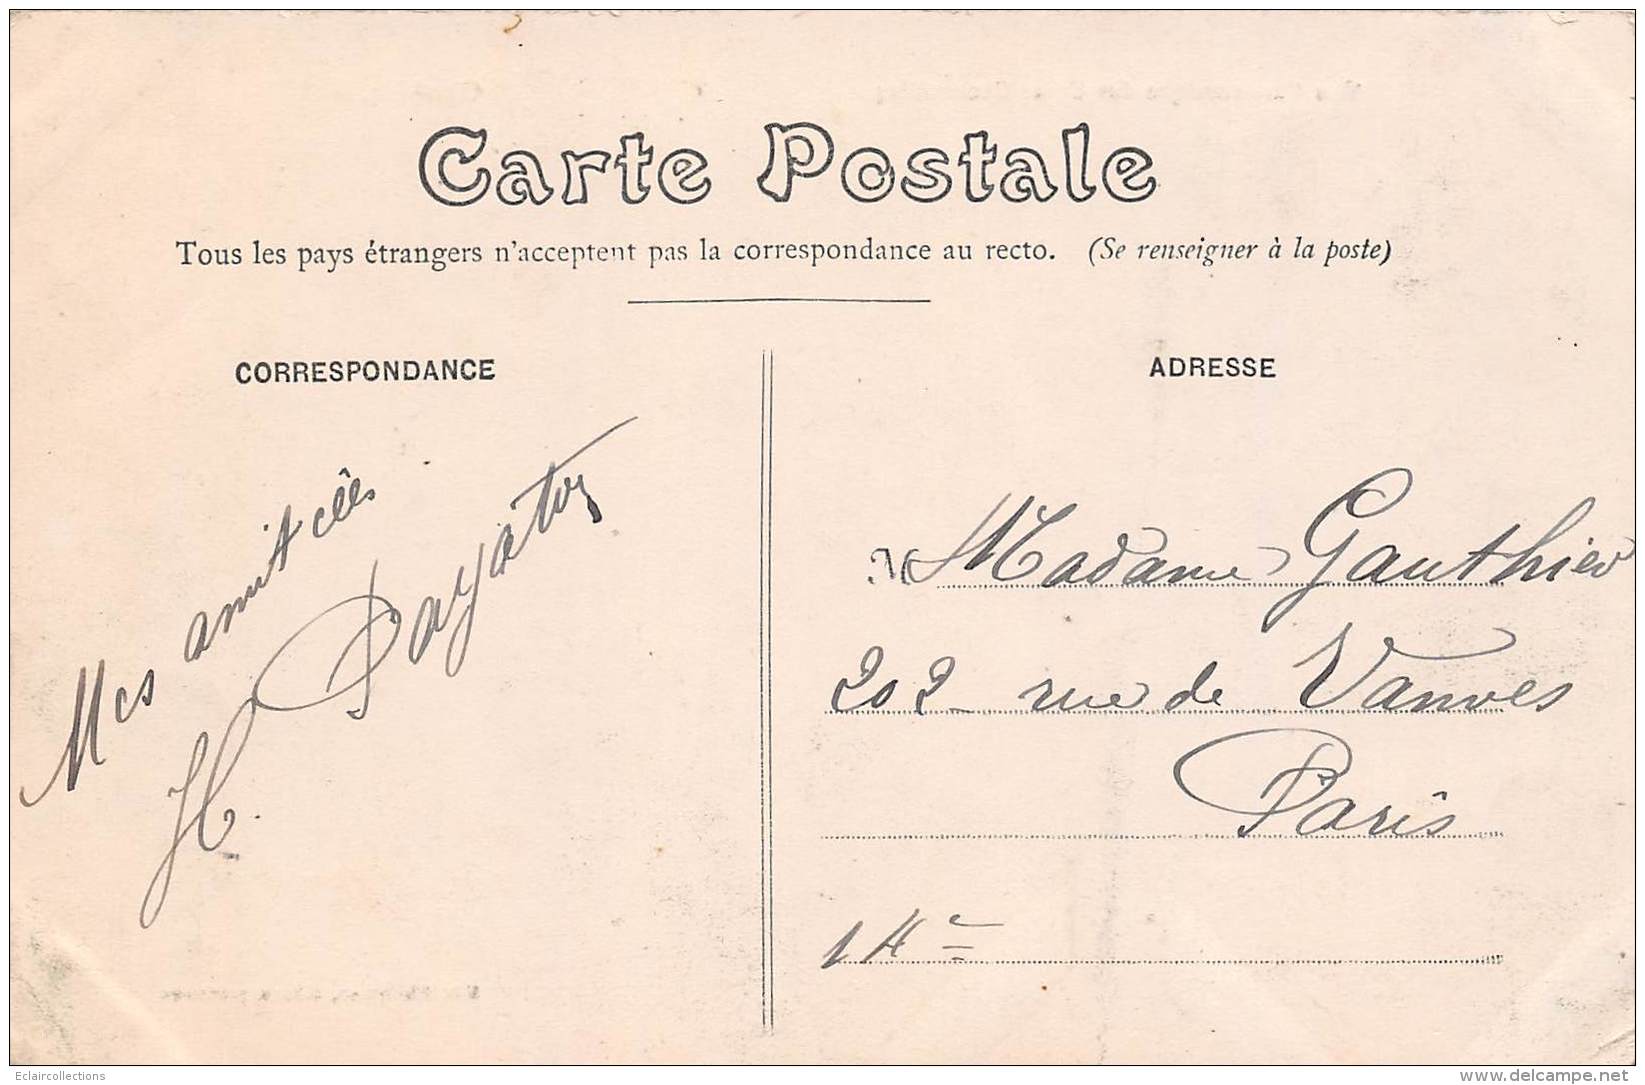 Carte Postale
Tous les pays étrangers n'acceptent pas la correspondance au recto. (Se renseigner à la poste)
CORRESPONDANCE
Mes amitiés
H.
ADRESSE
M Madame Gauthier
202 rue de Vanves
Paris
14e
Eclaircollections
www.delcampe.net